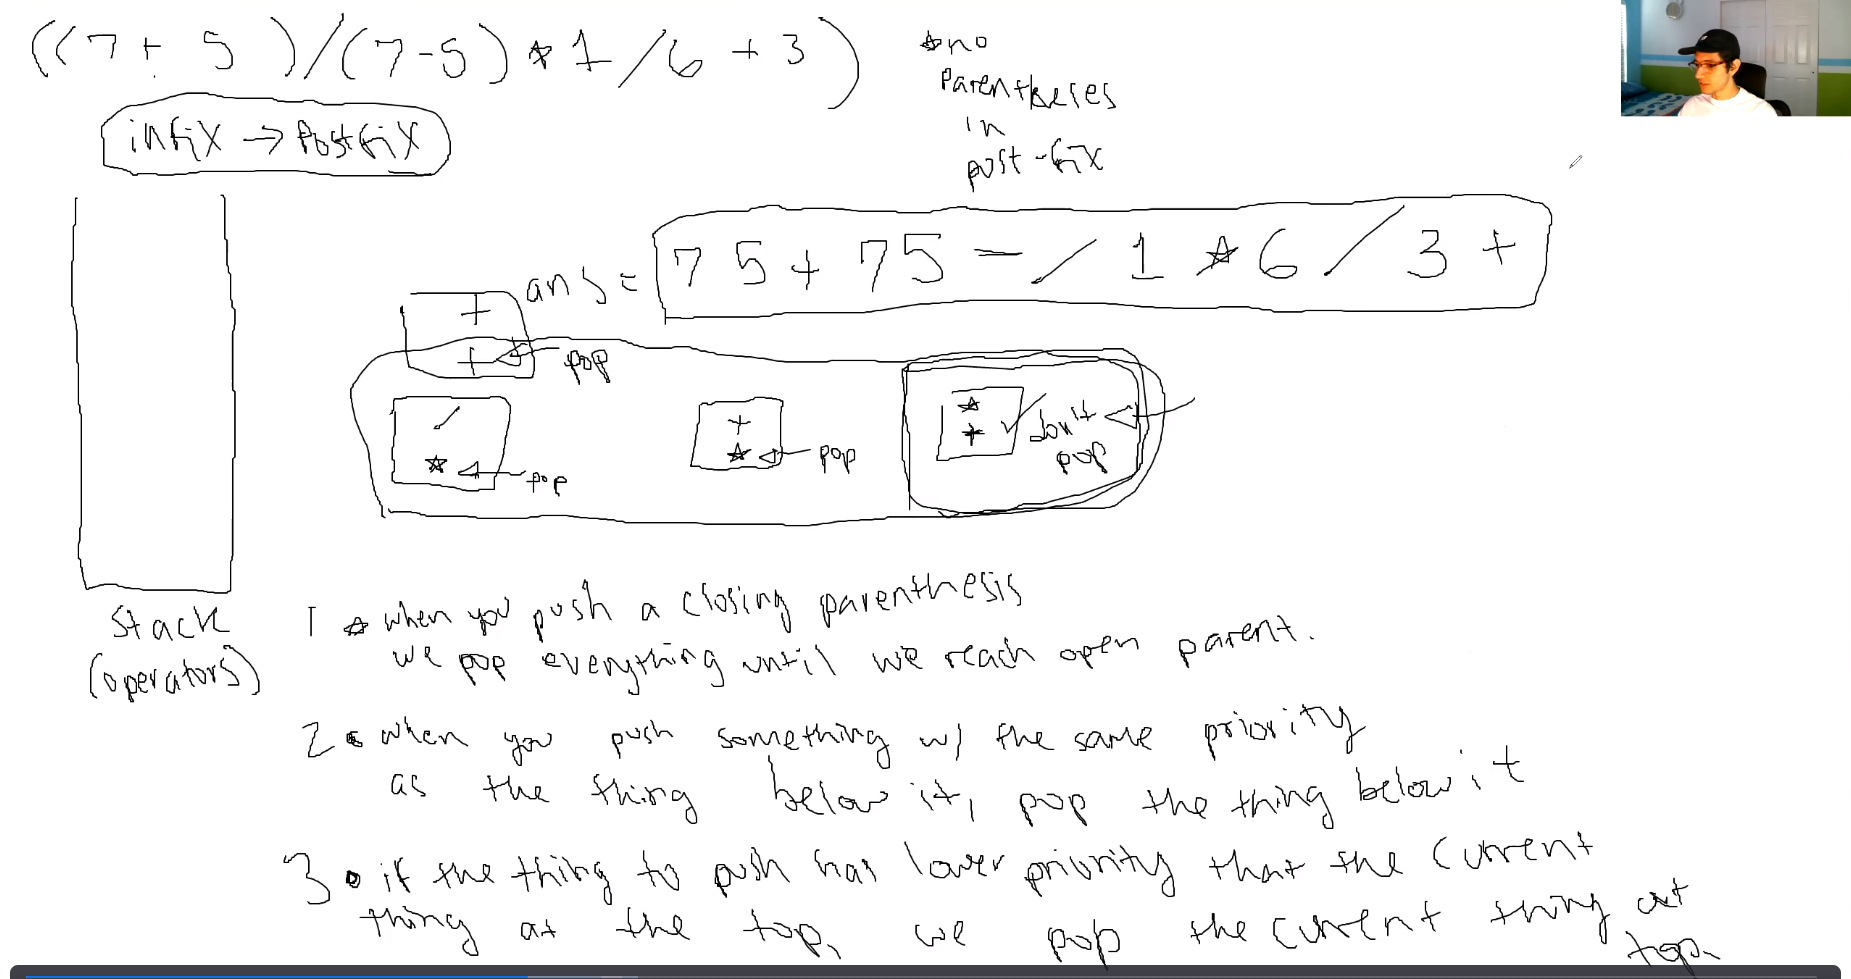 ((7+5)/(7-5)*1/6+3)
*no
parentheses
in
post-fix
infix → Postfix
ans = 75+75-/1*6/3+
+
+ pop
/
* pop
+
* pop
*
+ don't
pop
Stack
(operators)
1 * when you push a closing parenthesis
we pop everything until we reach open parent.
2 • when you push something w/ the same priority
as the thing below it, pop the thing below it
3 • if the thing to push has lower priority that the current
thing at the top, we pop the current thing at
top.